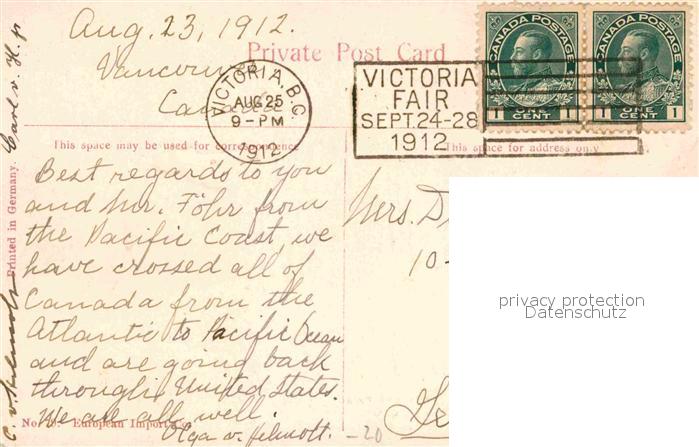 Aug. 23, 1912.
Vancouver
Canada
Private Post Card
VICTORIA, B.C.
AUG 25
9-PM
1912
VICTORIA
FAIR
SEPT. 24-28
1912
CANADA POSTAGE
1 ONE CENT 1
CANADA POSTAGE
1 ONE CENT 1
This space may be used for correspondence
This space for address only
Best regards to you
and Mr. Föhr from
the Pacific Coast, we
have crossed all of
Canada from the
Atlantic to Pacific Ocean
and are going back
through United States.
We are all well.
Olga v. Helmolt.
Mrs. D
10-
Ge
Printed in Germany.
Carl v. H. jr
C v Helmolt
No. European Import Co
-20
privacy protection
Datenschutz